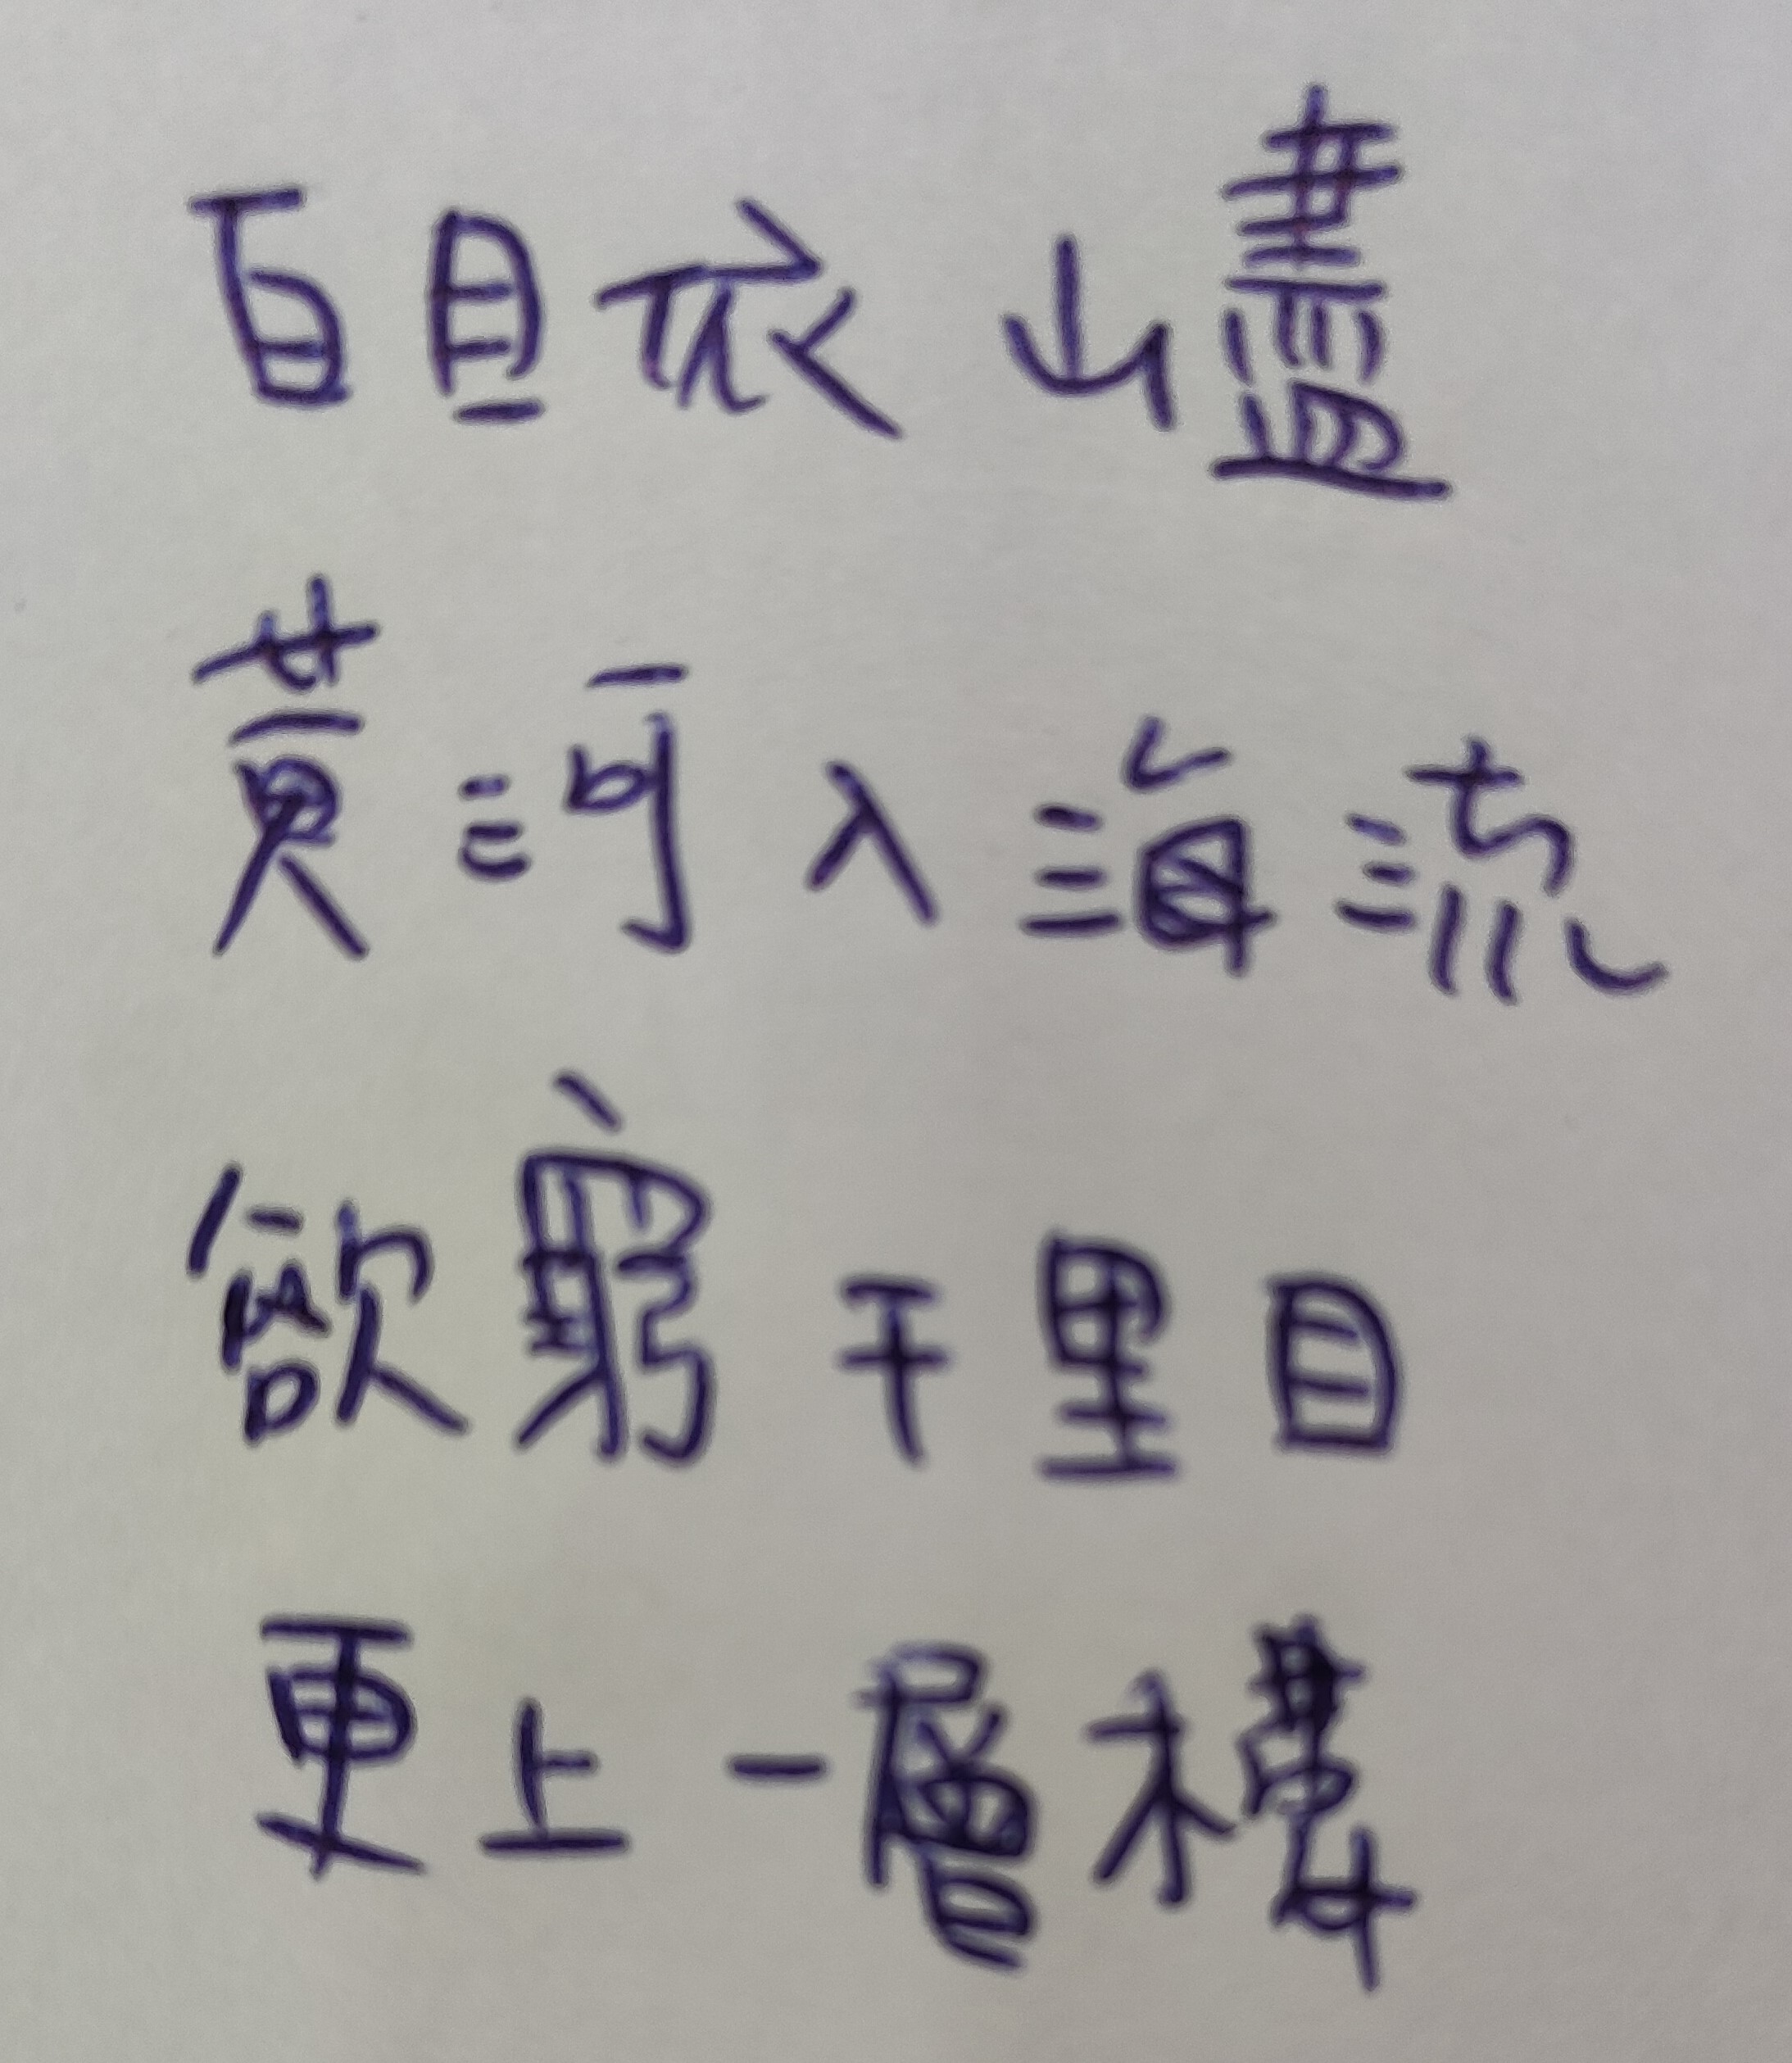 百目依山盡
黃河入海流
欲窮千里目
更上一層樓